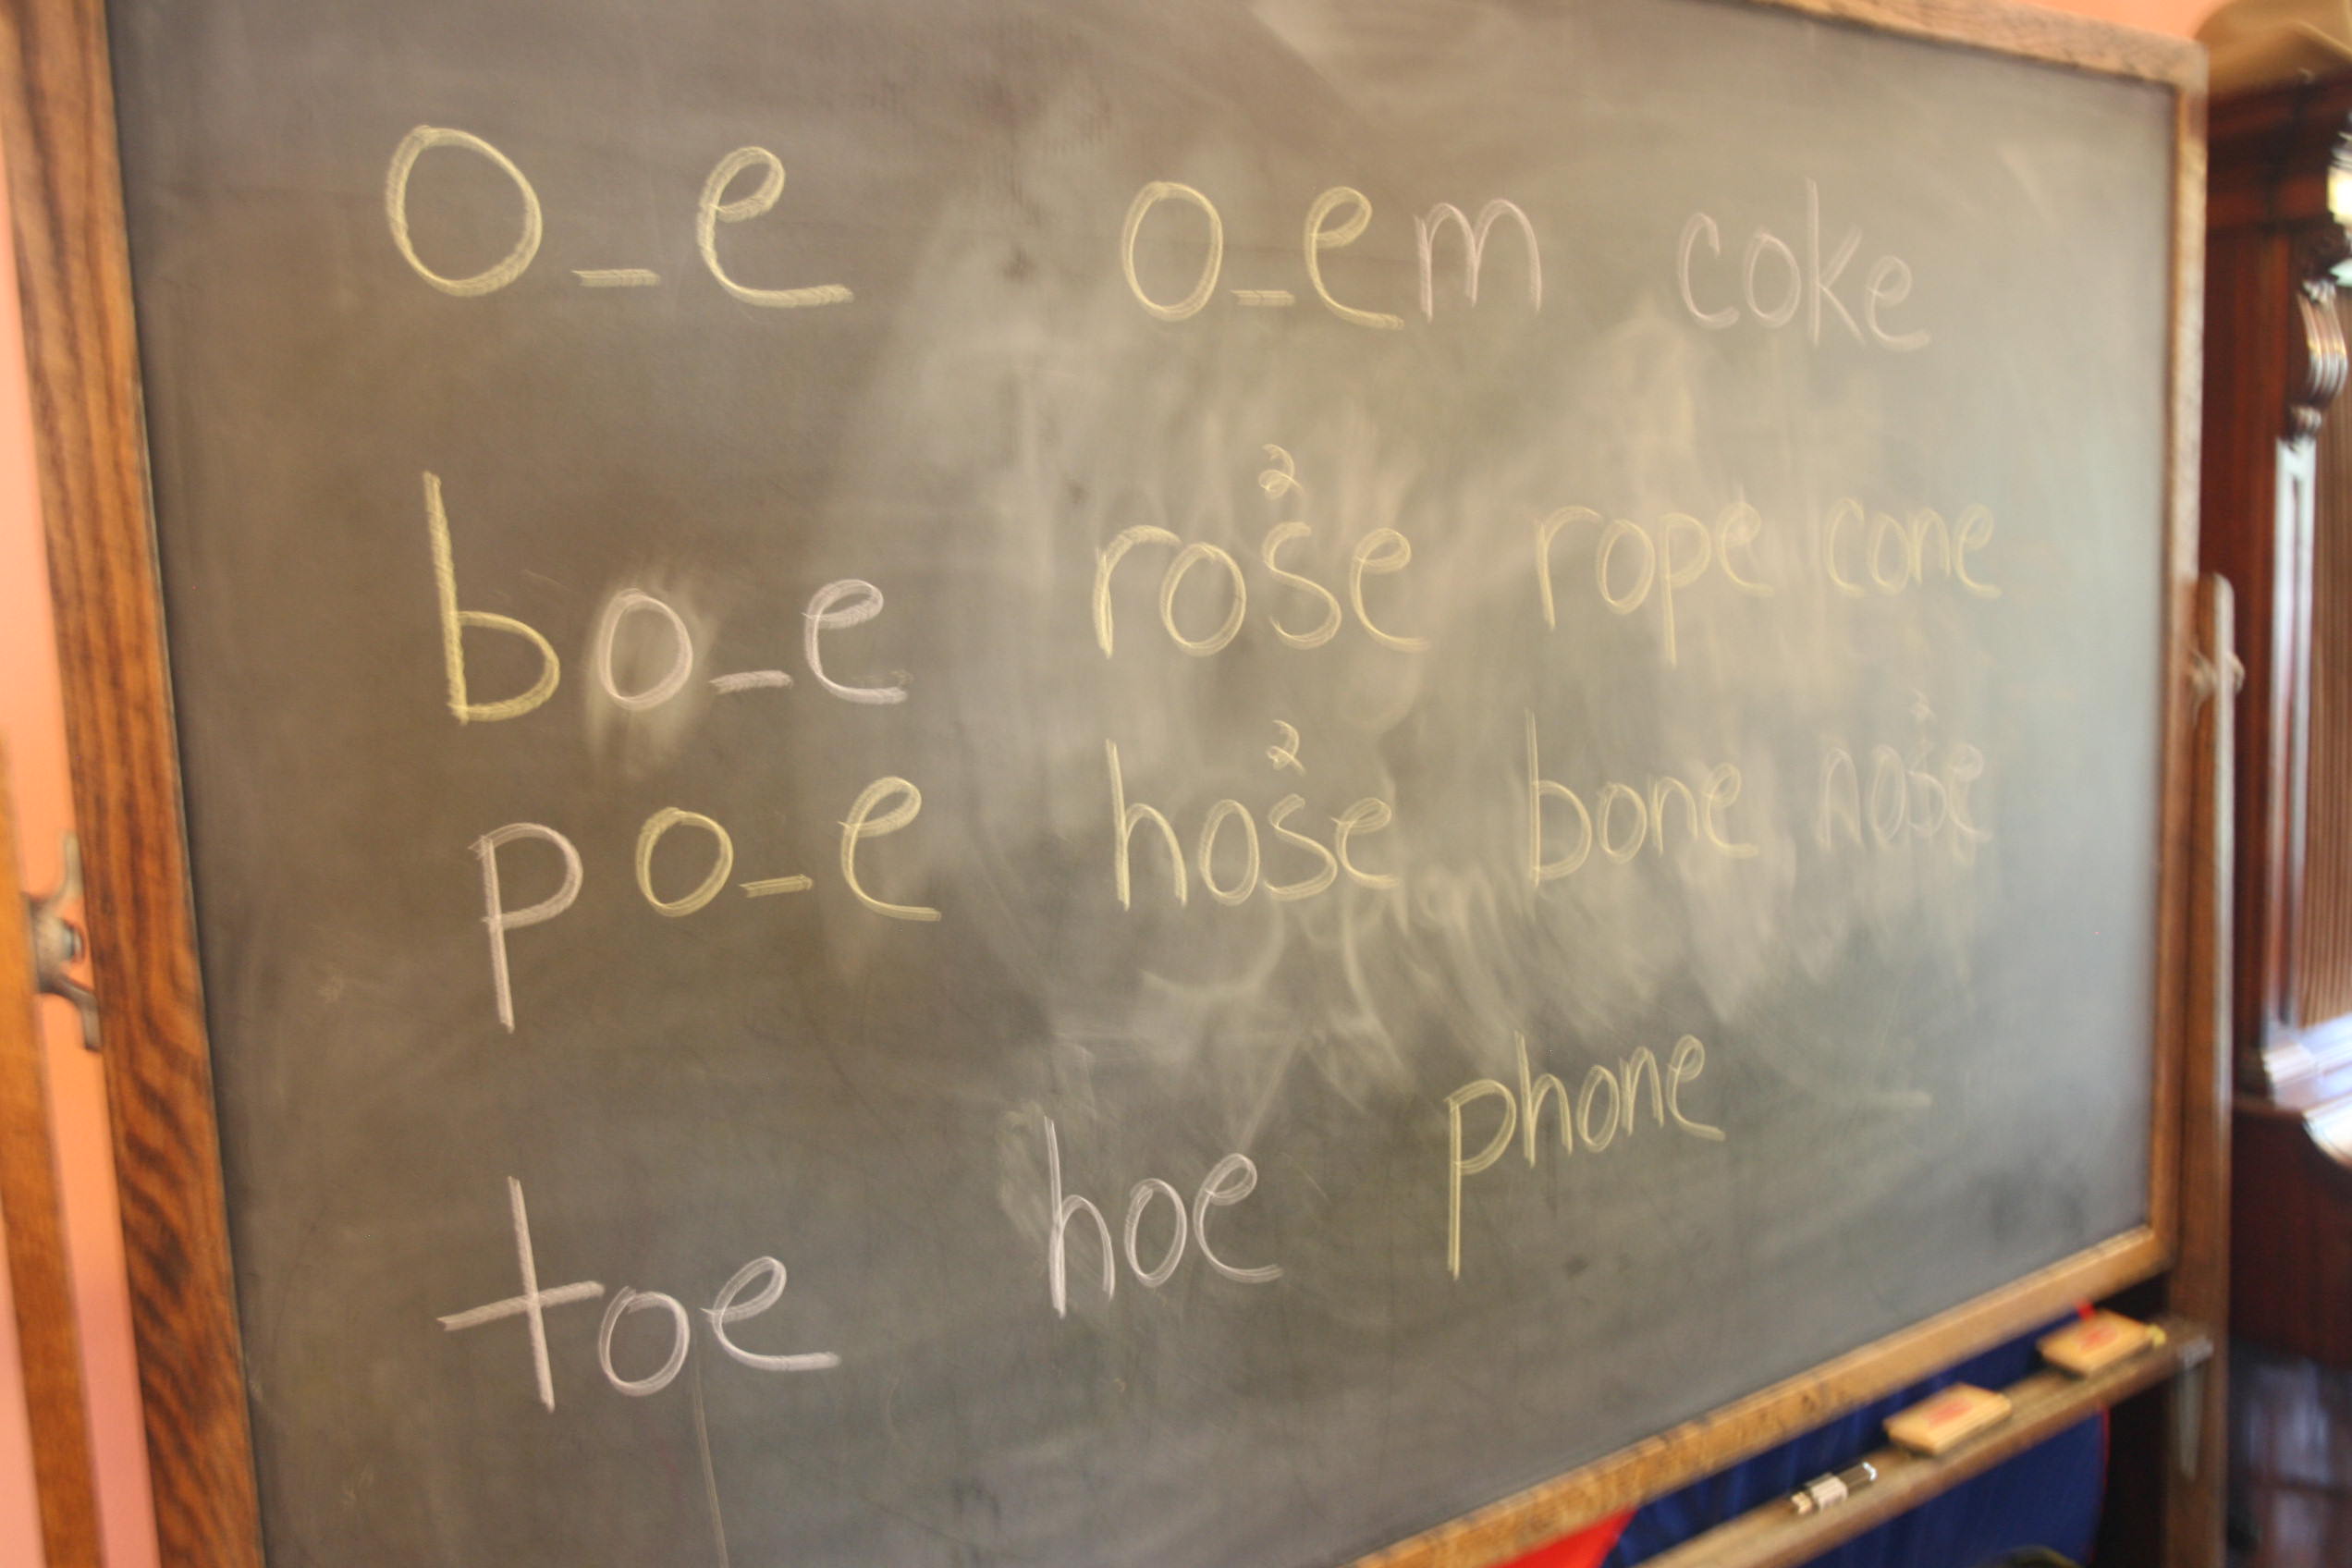 o_e o_em coke
2
bo_e rose rope cone
2 2
po_e hose bone nose
toe hoe phone